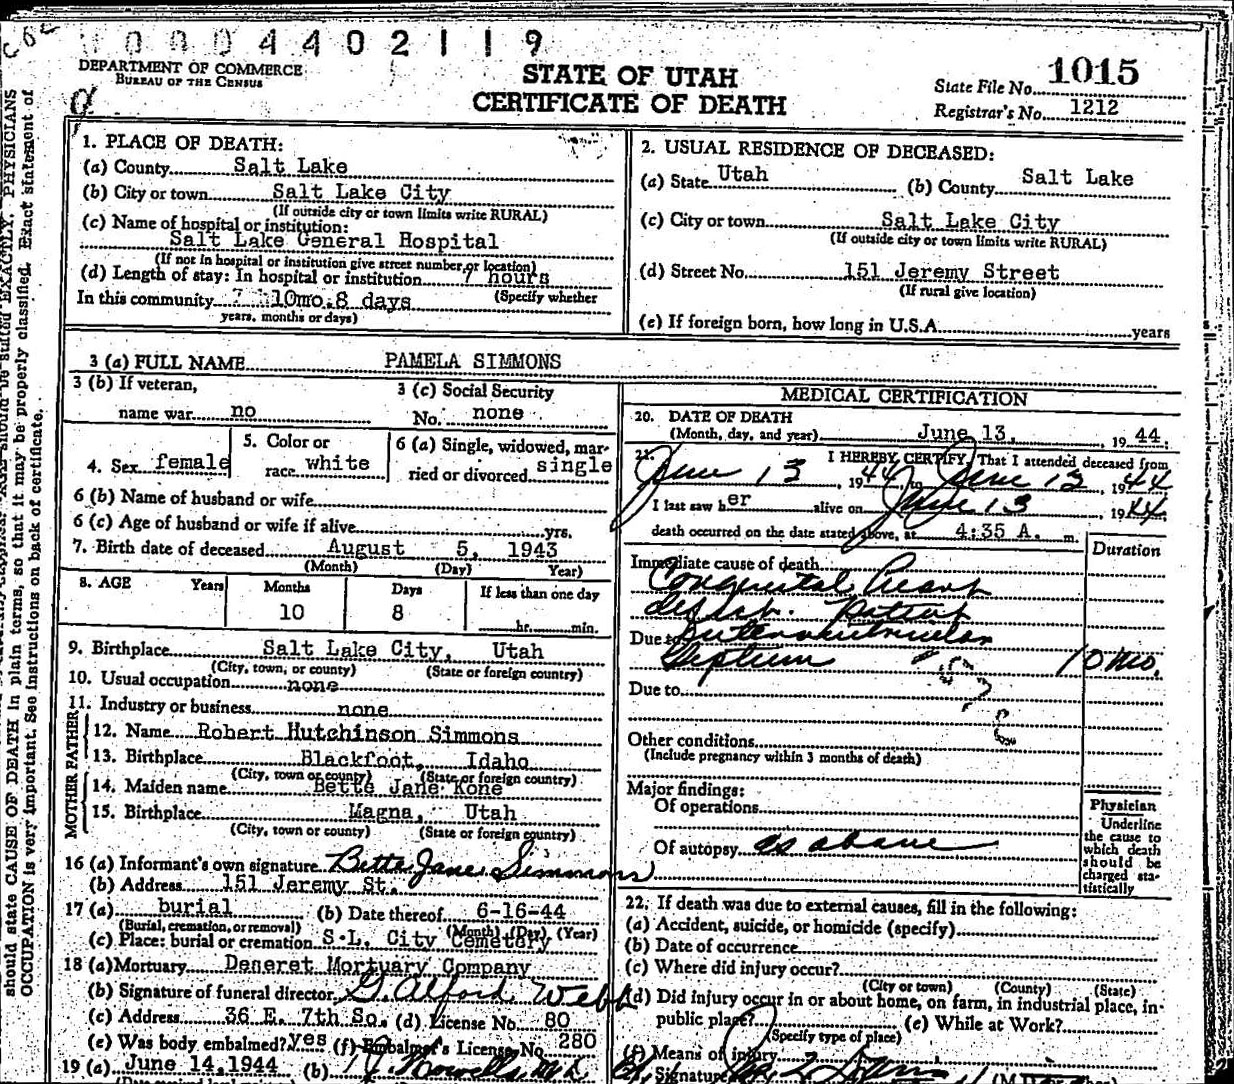 0 0 0 4 4 0 2 1 1 9
DEPARTMENT OF COMMERCE
BUREAU OF THE CENSUS
STATE OF UTAH
CERTIFICATE OF DEATH
State File No. 1015
Registrar's No. 1212
1. PLACE OF DEATH:
(a) County Salt Lake
(b) City or town Salt Lake City
(If outside city or town limits write RURAL)
(c) Name of hospital or institution:
Salt Lake General Hospital
(If not in hospital or institution give street number or location)
(d) Length of stay: In hospital or institution 7 hours
(Specify whether
In this community 10mo.8 days
years, months or days)
2. USUAL RESIDENCE OF DECEASED:
(a) State Utah (b) County Salt Lake
(c) City or town Salt Lake City
(If outside city or town limits write RURAL)
(d) Street No. 151 Jeremy Street
(If rural give location)
(e) If foreign born, how long in U.S.A. years
3 (a) FULL NAME PAMELA SIMMONS
3 (b) If veteran,
name war no
3 (c) Social Security
No. none
4. Sex female
5. Color or
race white
6 (a) Single, widowed, mar-
ried or divorced single
6 (b) Name of husband or wife
6 (c) Age of husband or wife if alive yrs.
7. Birth date of deceased August 5, 1943
(Month) (Day) Year)
8. AGE Years Months Days If less than one day
10 8 hr. min.
9. Birthplace Salt Lake City, Utah
(City, town, or county) (State or foreign country)
10. Usual occupation none
11. Industry or business none
FATHER
12. Name Robert Hutchinson Simmons
13. Birthplace Blackfoot, Idaho
(City, town or county) (State or foreign country)
MOTHER
14. Maiden name Bette Jane Kone
15. Birthplace Magna, Utah
(City, town or county) (State or foreign country)
16 (a) Informant's own signature Bette Jane Simmons
(b) Address 151 Jeremy St.
17 (a) burial (b) Date thereof 6-16-44
(Burial, cremation, or removal) (Month) (Day) (Year)
(c) Place: burial or cremation S.L. City Cemetery
18 (a) Mortuary Deseret Mortuary Company
(b) Signature of funeral director G. Alford Webb
(c) Address 36 E. 7th So. (d) License No. 80
(e) Was body embalmed? yes (f) Embalmer's License No. 280
19 (a) June 14,1944 (b)
MEDICAL CERTIFICATION
20. DATE OF DEATH
(Month, day, and year) June 13, 1944.
21. I HEREBY CERTIFY, That I attended deceased from
June 13, 1944, to June 13, 1944
I last saw her alive on June 13 1944.
death occurred on the date stated above, at 4:35 A. m.
Duration
Immediate cause of death
Congenital Heart
Patent
Due to Interventricular
Septum 10 mo.
Due to
Other conditions
(Include pregnancy within 3 months of death)
Major findings:
Of operations
Of autopsy as above
Physician
Underline
the cause to
which death
should be
charged sta-
tistically
22. If death was due to external causes, fill in the following:
(a) Accident, suicide, or homicide (specify)
(b) Date of occurrence
(c) Where did injury occur?
(City or town) (County) (State)
(d) Did injury occur in or about home, on farm, in industrial place, in
public place? (e) While at Work?
(Specify type of place)
(f) Means of injury
Signature
should state CAUSE OF DEATH in plain terms, so that it may be properly classified. Exact statement of
OCCUPATION is very important. See instructions on back of certificate.
EXACTLY. PHYSICIANS